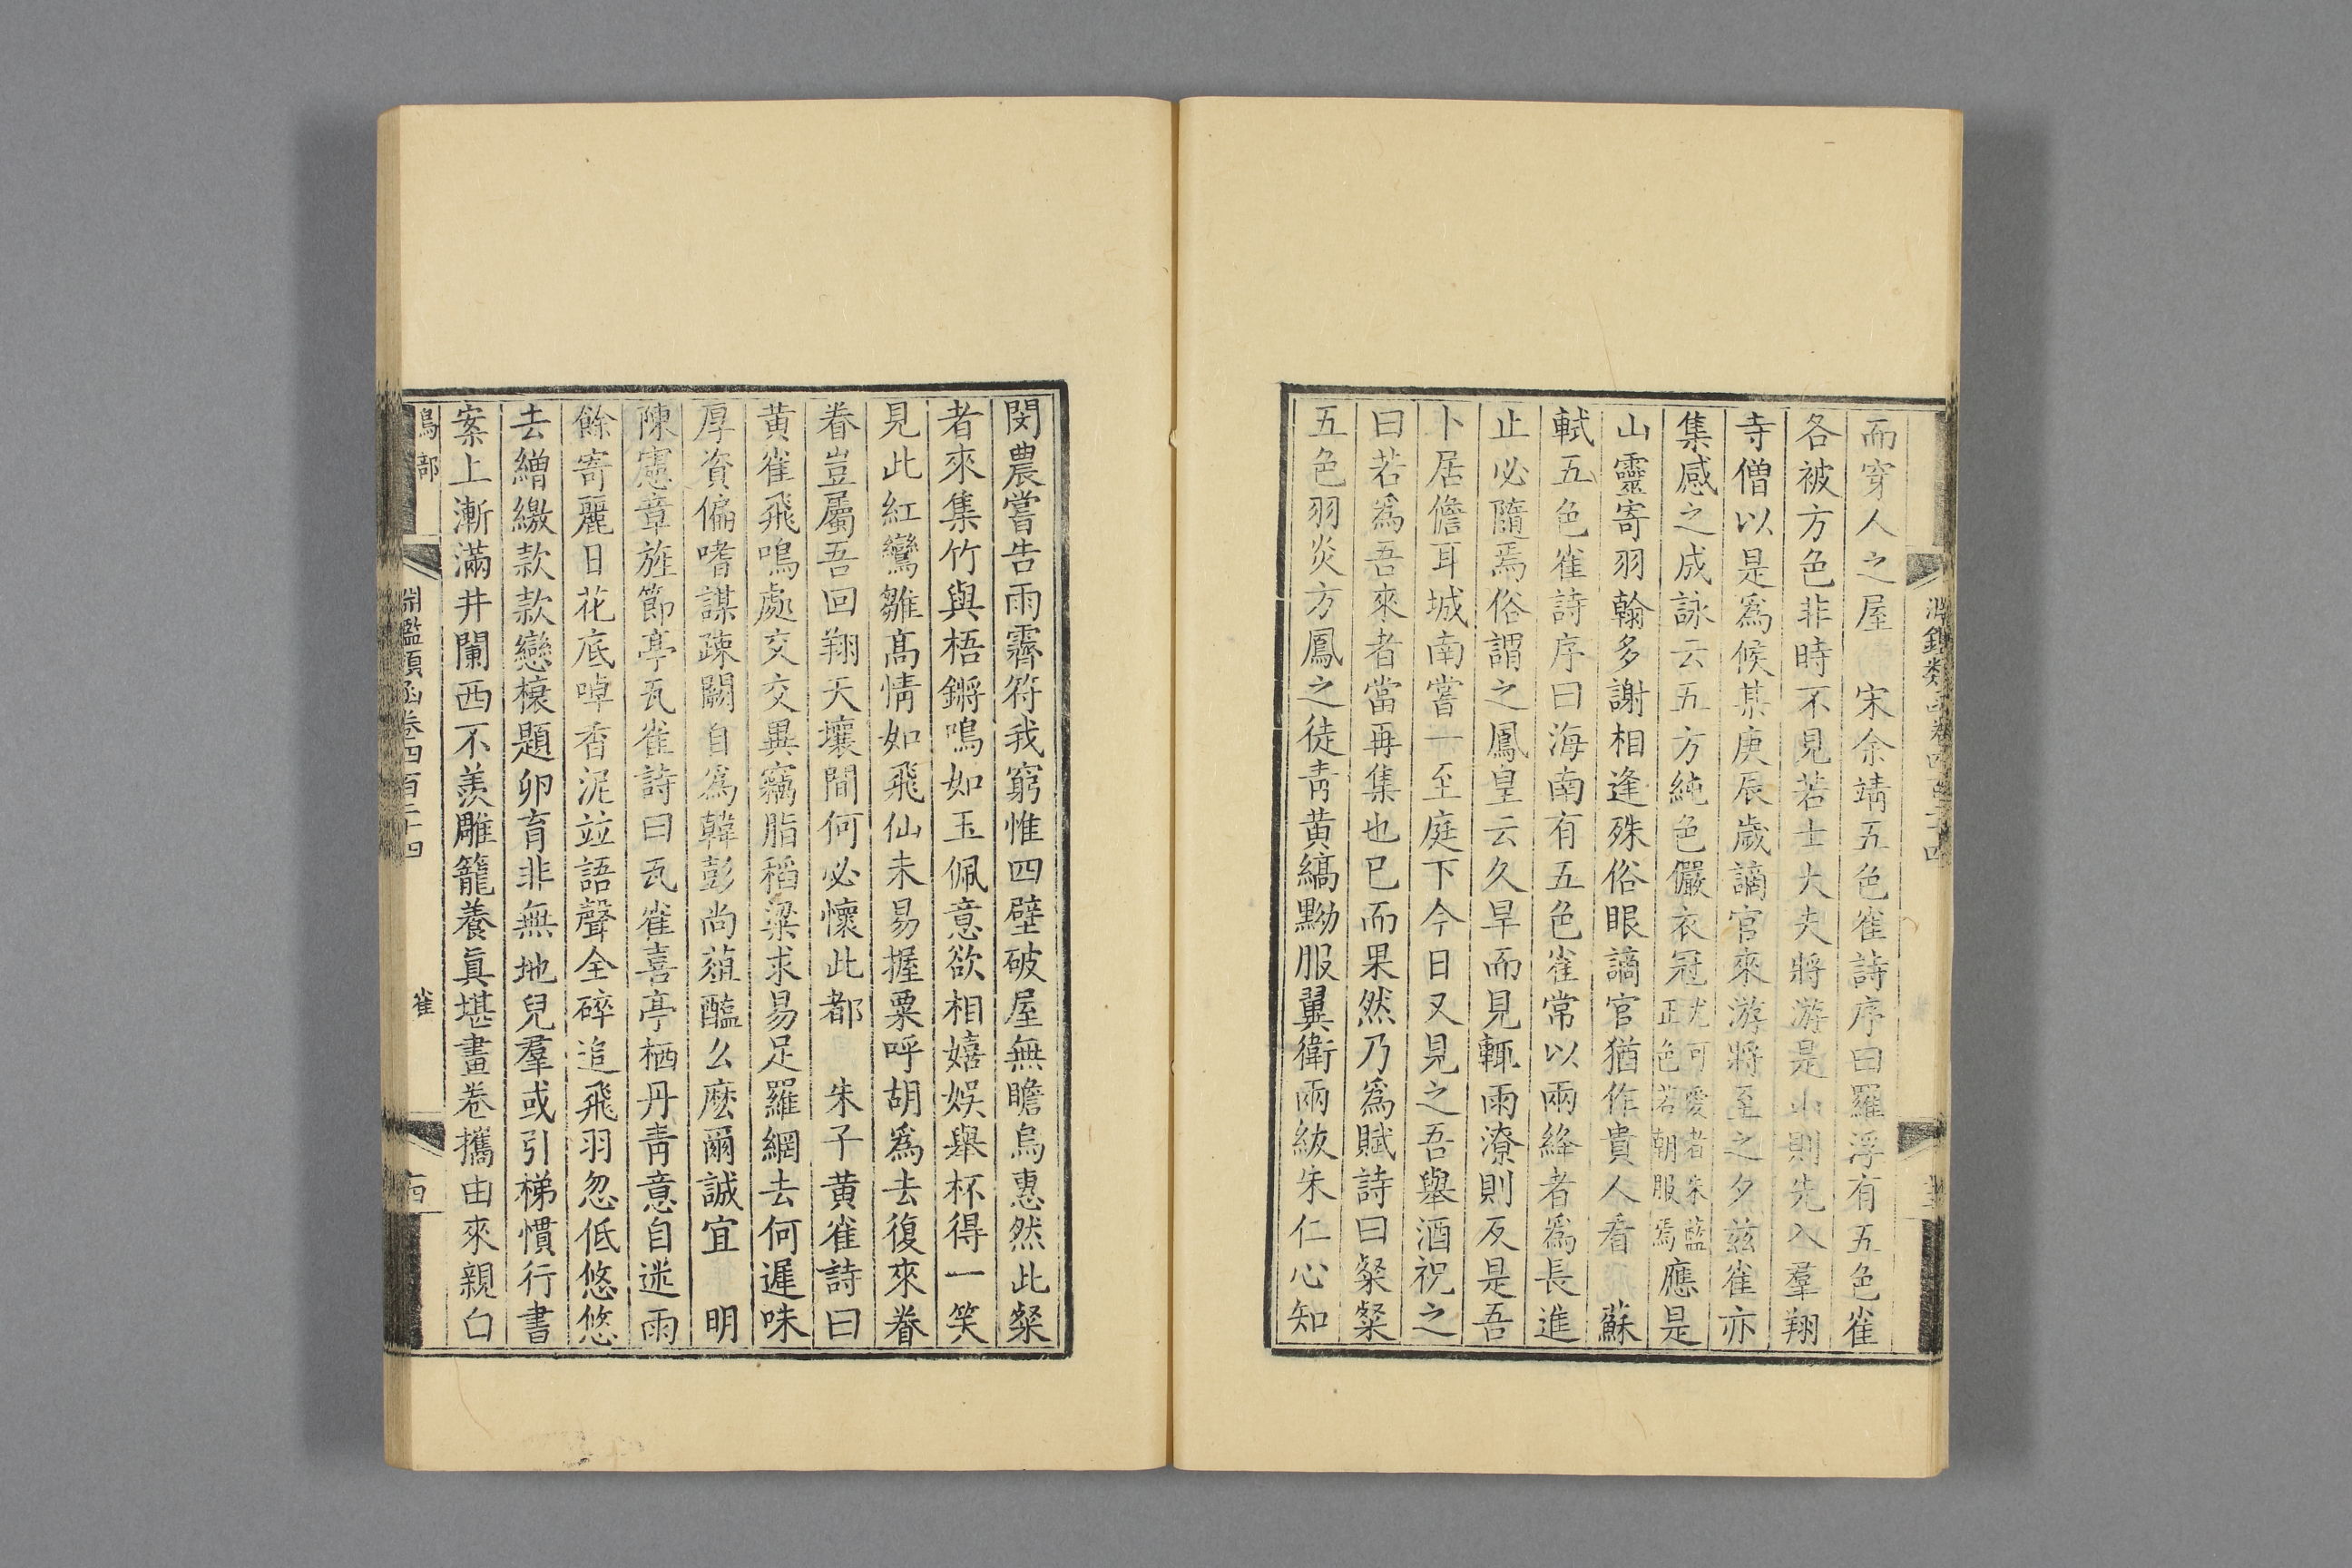 而穿人之屋　宋余靖五色雀詩序曰羅浮有五色雀
各被方色非時不見若士大夫將游是山則先入羣翔
寺僧以是爲候某庚辰歲謫官來游將至之夕茲雀亦
集感之成詠云五方純色儼衣冠尤可愛者朱藍正色若朝服焉應是
山靈寄羽翰多謝相逢殊俗眼謫官猶作貴人看　蘇
軾五色雀詩序曰海南有五色雀常以兩絳者爲長進
止必隨焉俗謂之鳳皇云久旱而見輒雨潦則反是吾
卜居儋耳城南嘗一至庭下今日又見之吾舉酒祝之
曰若爲吾來者當再集也已而果然乃爲賦詩曰粲粲
五色羽炎方鳳之徒青黃縞黝服翼衛兩紱朱仁心知
閔農嘗告雨霽符我窮惟四壁破屋無瞻烏惠然此粲
者來集竹與梧鏘鳴如玉佩意欲相嬉娛舉杯得一笑
見此紅鸞雛高情如飛仙未易握粟呼胡爲去復來眷
眷豈屬吾回翔天壤間何必懷此都　朱子黃雀詩曰
黃雀飛鳴處交交異竊脂稻粱求易足羅網去何遲味
厚資偏嗜謀疎闕自爲韓彭尚菹醢么麽爾誠宜　明
陳憲章旌節亭瓦雀詩曰瓦雀喜亭栖丹青意自迷雨
餘寄麗日花底啅香泥竝語聲全碎追飛羽忽低悠悠
去繒繳款款戀榱題卵育非無地兒羣或引梯慣行書
案上漸滿井闌西不羨雕籠養眞堪畫卷攜由來親白
鳥部
淵鑑類函卷四百二十四
雀